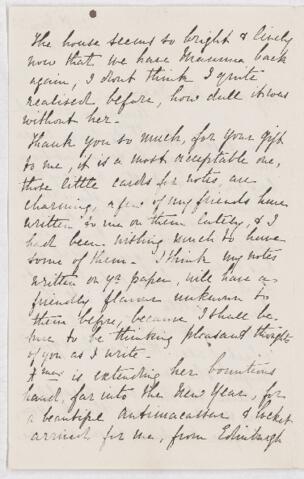 The house seems so bright & lively
now that we have Mamma back
again, I don't think I quite
realised, before, how dull it was
without her -
Thank you so much, for your gift
to me, it is a most acceptable one,
those little cards for notes, are
charming, a few of my friends have
written to me on them lately, & I
had been wishing much to have
some of them - I think my notes
written on yr paper, will have a
friendly flavour unknown to
them before, because I shall be
sure to be thinking pleasant thoughts
of you as I write -
is extending her bounteous
hand, far into the New Year, for
a beautiful antimacassar & locket
arrived for me, from Edinburgh